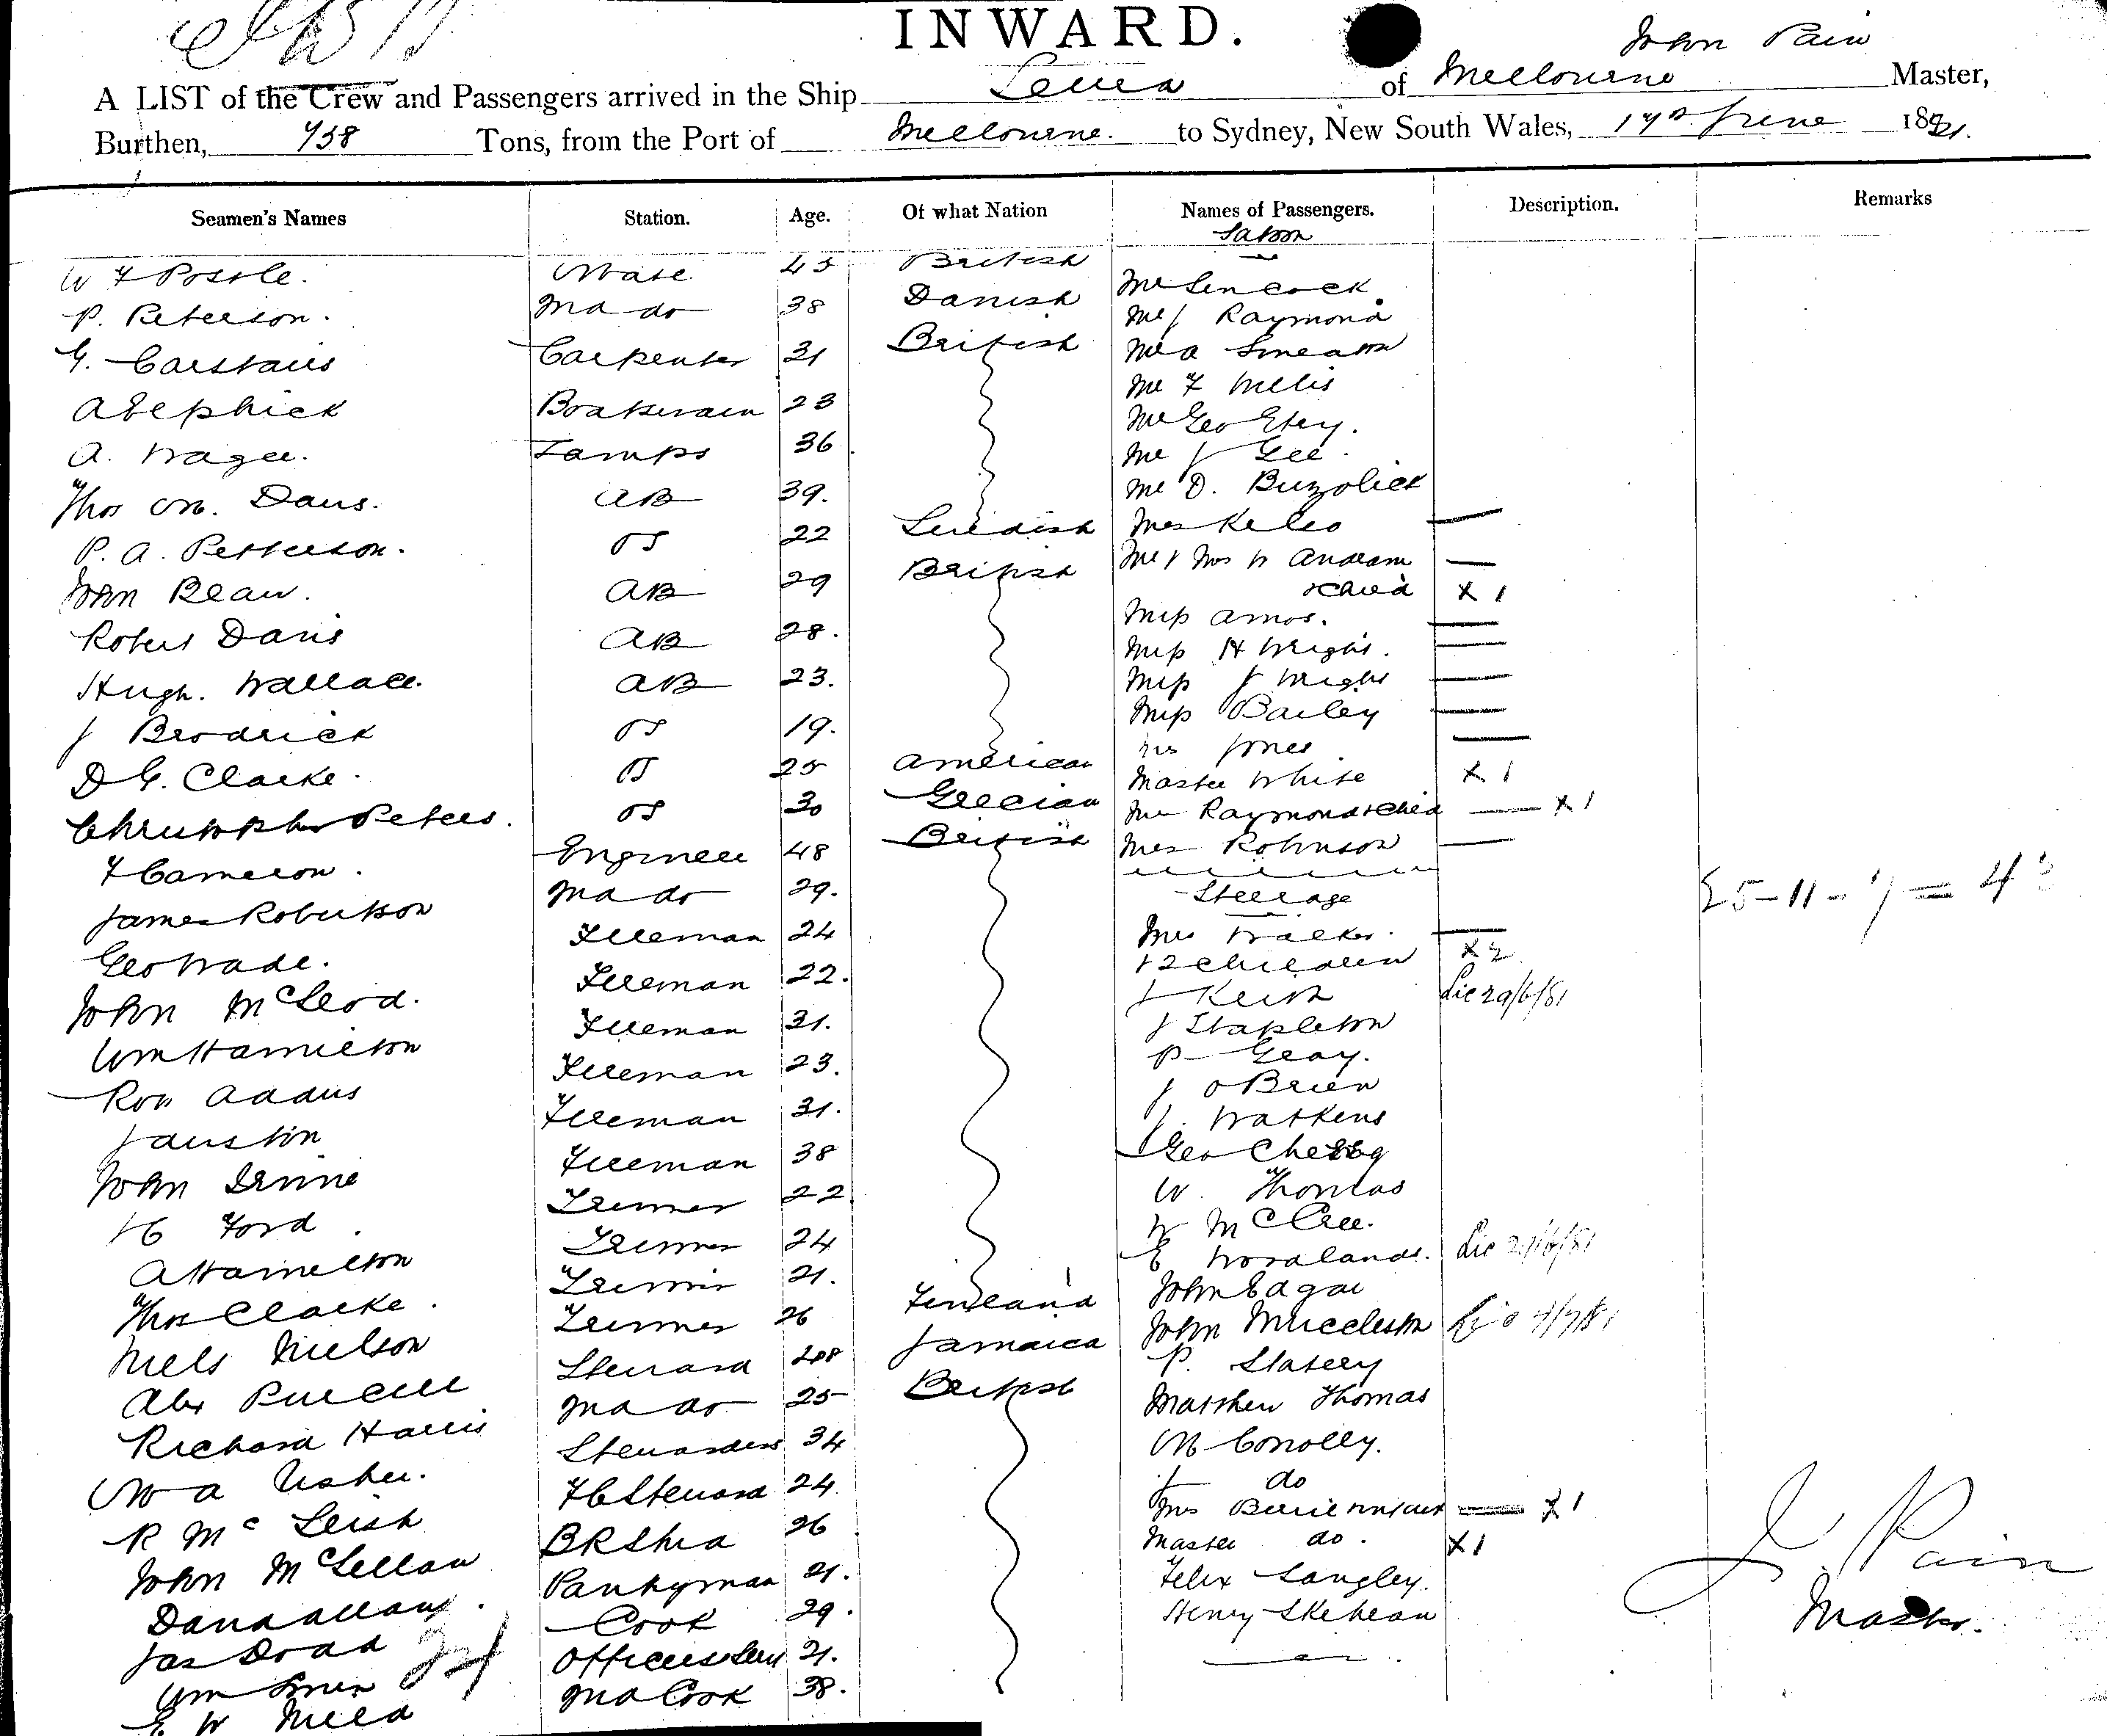 INWARD.
John Pain
A LIST of the Crew and Passengers arrived in the Ship of Melbourne Master,
Burthen, 738 Tons, from the Port of Melbourne. to Sydney, New South Wales, 17th June 1881.
Seamen's Names Station. Age. Of what Nation Names of Passengers. Description. Remarks
Saloon
Mate 45 British
P. Peterson. 2nd do 38 Danish Mr J Raymond
G. Carstairs Carpenter 31 British Mr A Smeaton
A Elphick Boatswain 23 Mr F Willis
A. Magee. Lamps 36 Mr Geo
Mr J Gee.
Thos M. Davis. AB 39. Mr D. Buzolick
P. A. Petterson. OS 22 Swedish Mrs
John Bean. AB 29 British Mr & Mrs W
& Child X 1
Robert Davis AB 28. Miss Amos.
Miss H Wright.
Hugh. Wallace. AB 23. Miss J Wright
Miss Bailey
J Brodrick OS 19. Mrs Jones
D G. Clarke. OS 25 American Master White X 1
Christopher Peters. OS 30 Grecian Mrs Raymond & Child X 1
F Cameron. Engineer 48 British Mrs Robinson
James Robertson 2nd do 29. Steerage
Geo Wade. Fireman 24 Mrs Walker.
& 2 Children X 2
John McLeod. Fireman 22. J Keith Lic 29/6/81
Wm Hamilton Fireman 31. J Stapleton
P Geay.
Robt Fireman 23. J O Brien
J Austin Fireman 31. J. Watkins
Geo
John Irvine Fireman 38 W. Thomas
H Ford. Trimmer 22 W
A Hamilton Trimmer 24 E Woodlands. Lic
Thos Clarke. Trimmer 21. John Edgar
Niels Nielson Trimmer 26 Finland John
Alex Purcell Steward Jamaica P. Slattery
Richard Harris 2nd do 25 British Matthew Thomas
M A Usher. Stewardess 34 M Conolly.
J do
R McLeish F C Steward 24 Mrs X 1
John McLellan 26 Master do. X 1
Pantryman 21. Felix Langley.
Jas Dodd Cook 29. Henry Skehean
Wm Officers Serv 21.
E W 2nd Cook 38.
25-11-7 = 43
J. Pain
Master.